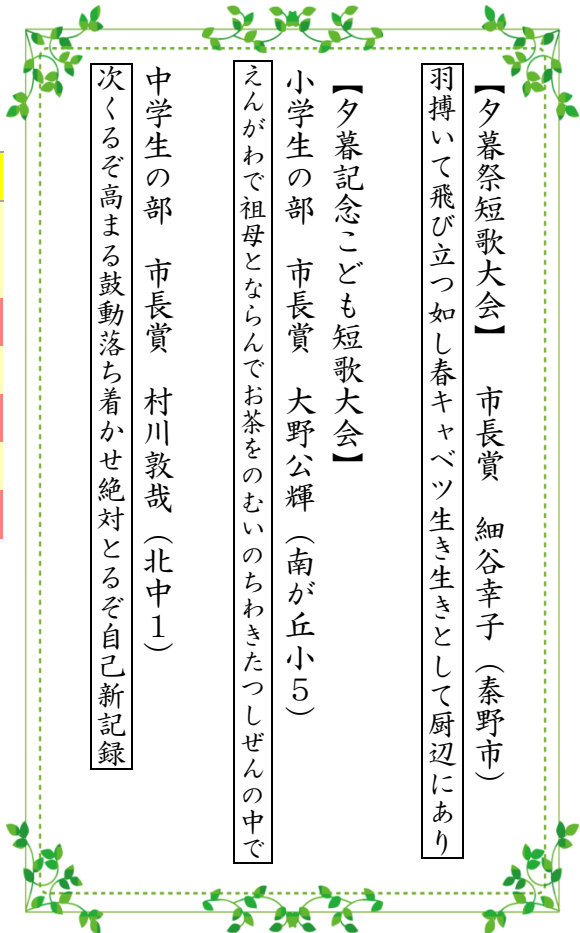 【夕暮祭短歌大会】　市長賞　細谷幸子（秦野市）
羽搏いて飛び立つ如し春キャベツ生き生きとして厨辺にあり
【夕暮記念こども短歌大会】
小学生の部　市長賞　大野公輝（南が丘小５）
えんがわで祖母とならんでお茶をのむいのちわきたつしぜんの中で
中学生の部　市長賞　村川敦哉（北中１）
次くるぞ高まる鼓動落ち着かせ絶対とるぞ自己新記録